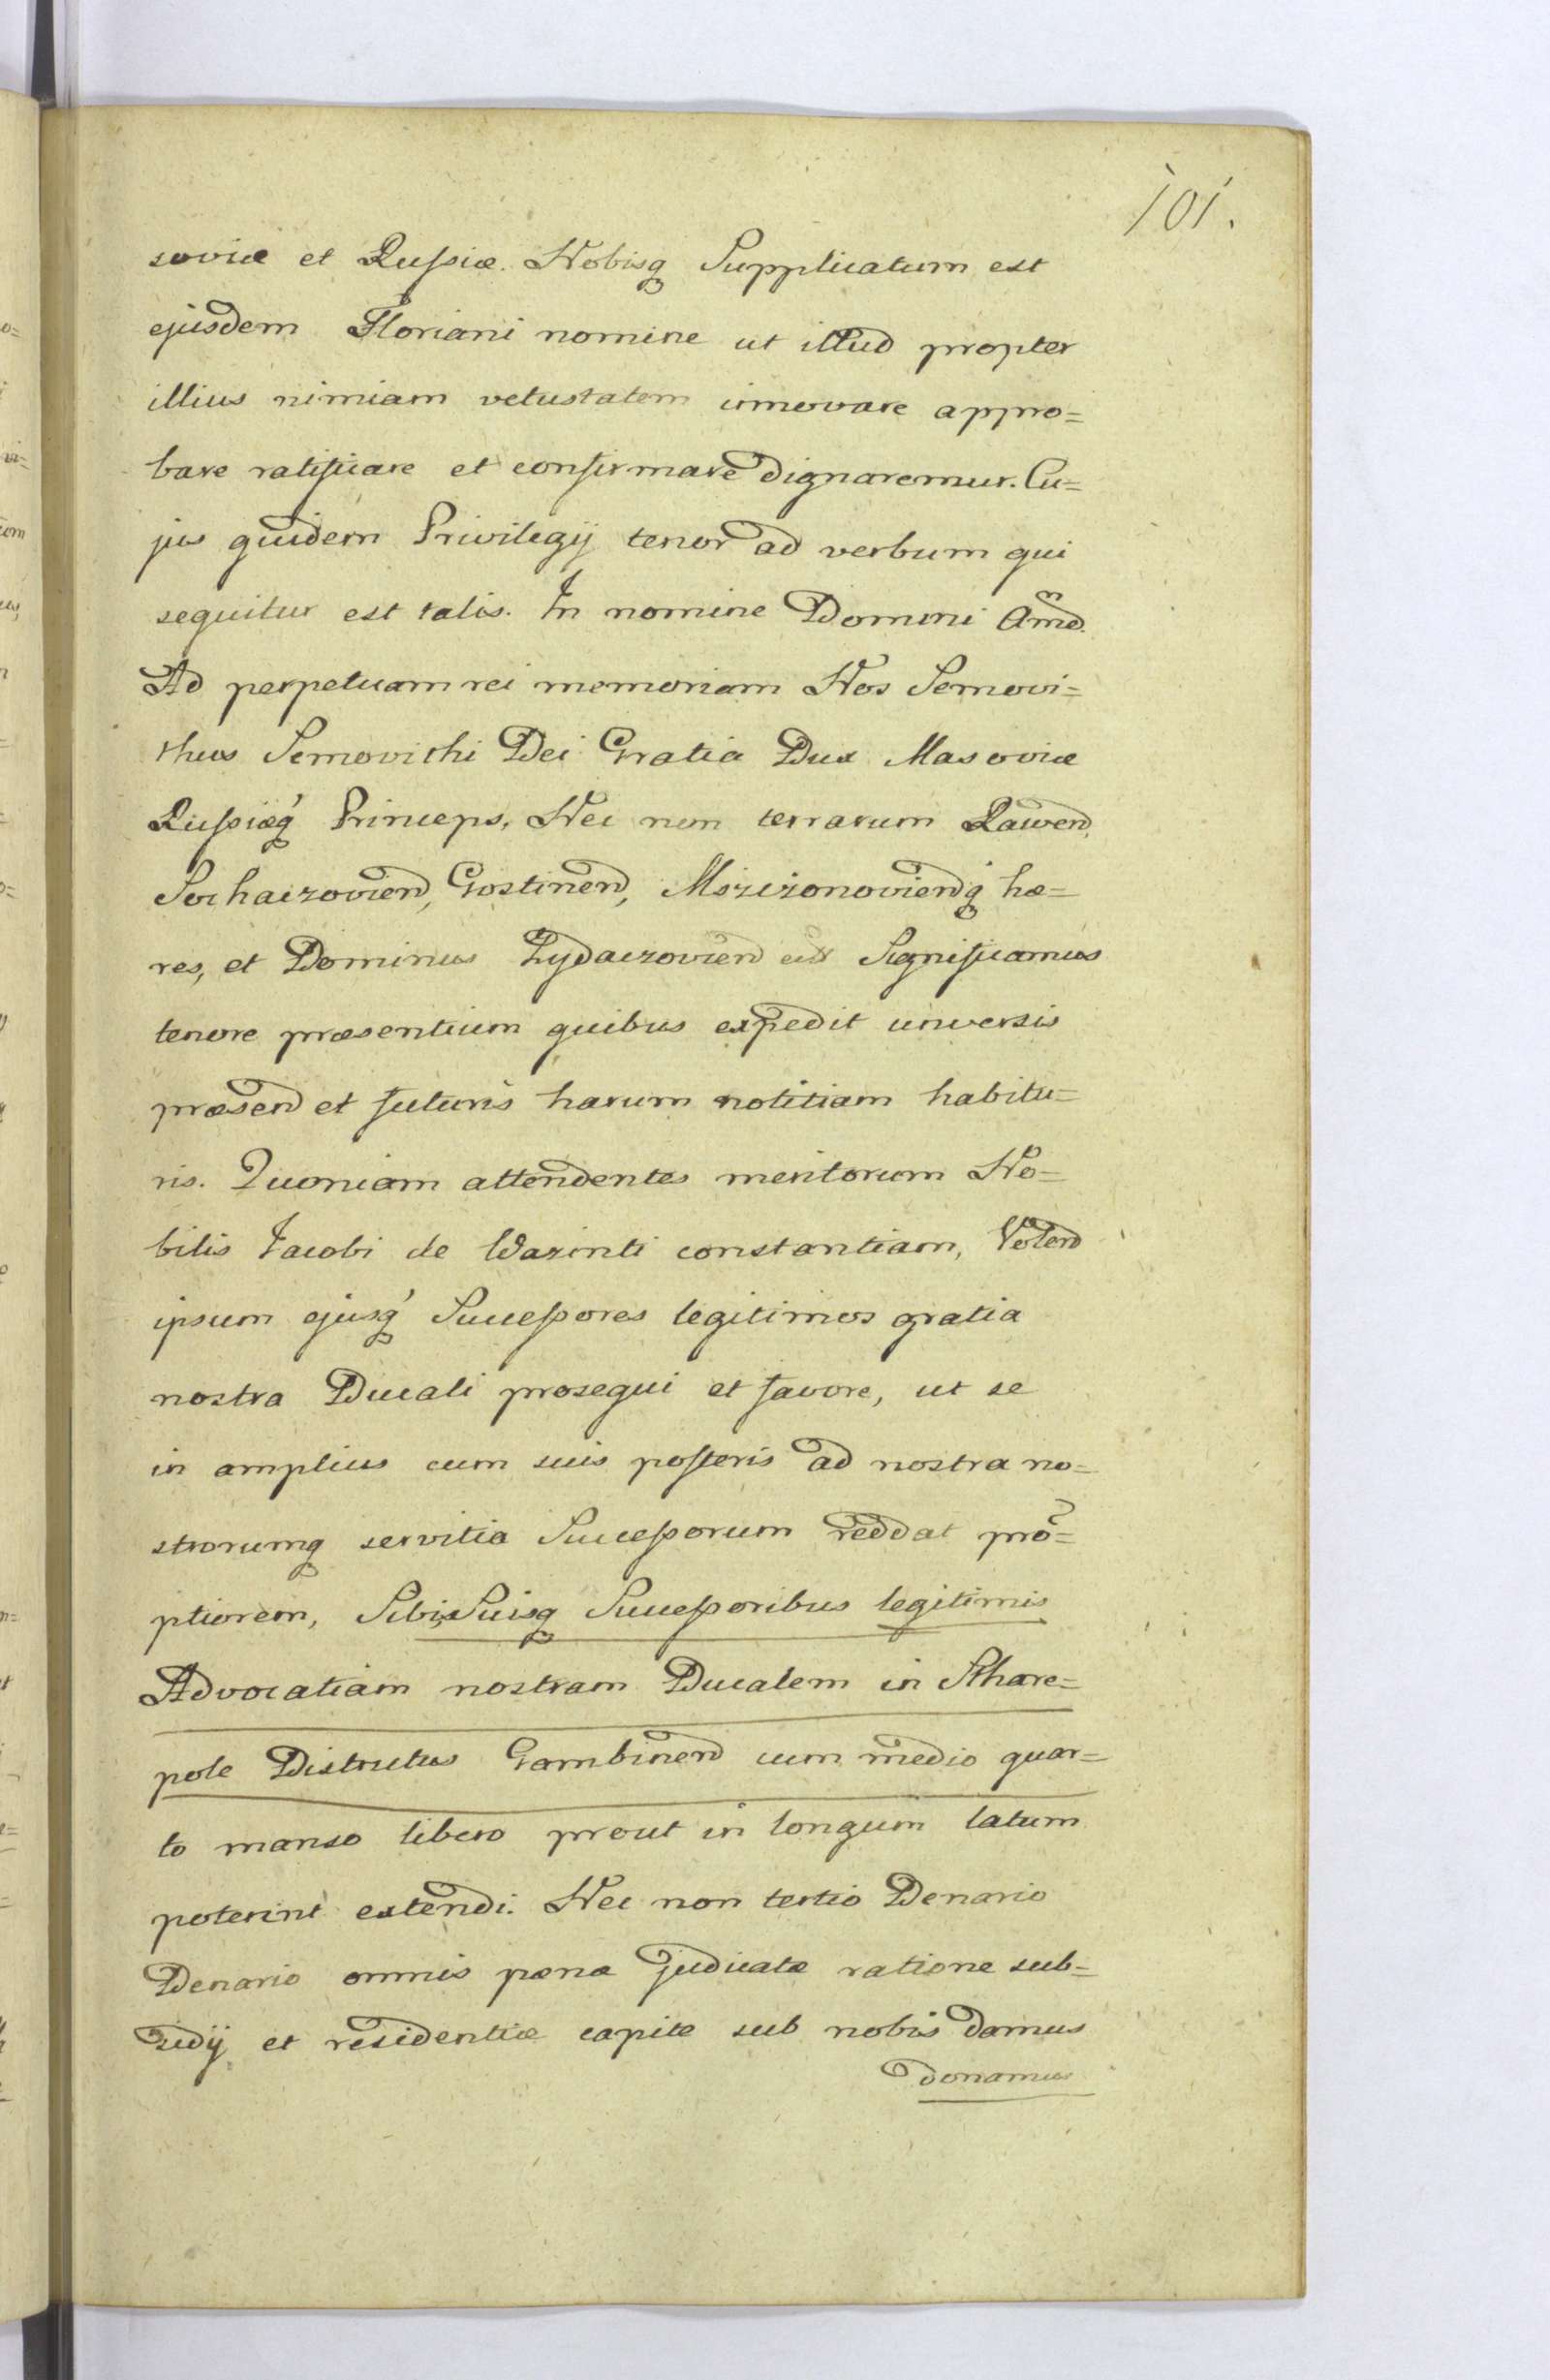 101.
soviæ et Russiæ. Nobisq Supplicatum est
ejusdem Floriani nomine ut illud propter
illius nimiam vetustatem innovare appro=
bare ratificare et confirmare dignaremur. Cu=
jus quidem Privilegij tenor ad verbum qui
sequitur est talis. In nomine Domini Ame.
Ad perpetuam rei memoriam Nos Semovi=
thus Semovithi Dei Gratia Dux Masoviæ
Russiæq Princeps, Nec non terrarum Rawen
Sochaczovien, Gostinen, Mszczonovienq hæ=
res, et Dominus Zydaczovien etc Significamus
tenore præsentium quibus expedit universis
præsen et futuris harum notitiam habitu=
ris. Quoniam attendentes meritorum No=
bilis Jacobi de constantiam, Volen
ipsum ejusq Successores legitimos gratia
nostra Ducali prosequi et favore, ut se
in amplius cum suis posteris ad nostra no=
strorumq servitia Successorum reddat pro=
ptiorem, Sibi, Suisq Successoribus legitimis
Advocatiam nostram Ducalem in Sthare=
pole Districtus Gambinen cum medio quar=
to manso libero prout in longum latum
poterint extendi. Nec non tertio Denario
Denario omnis pænæ judicatæ ratione sub=
sidij et residentiæ capite sub nobis damus
donamus